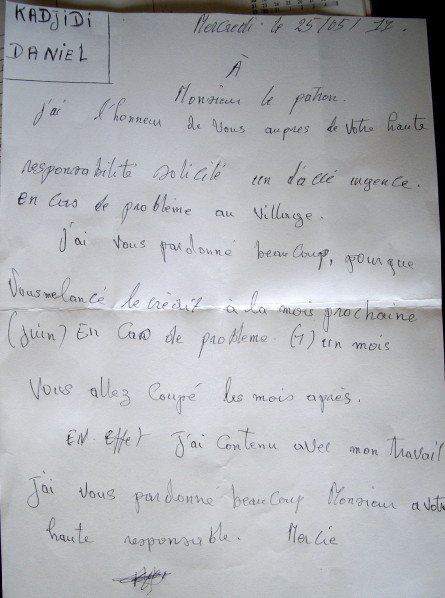 KADJIDI
DANIEL
Mercredi le 25/05/11.
À
Monsieur le patron.
j'ai l'honneur de Vous aupres de Votre haute
responsabilité solicité un d'acié urgence.
En Cas de problème au Village.
J'ai Vous pardonné beaucoup, pour que
Vous melancé le crédit à la mois prochaine
(juin) En Cas de problème. (1) un mois
Vous allez Coupé les mois après.
EN. Effet J'ai Contenu avec mon travail
J'ai Vous pardonné beaucoup Monsieur a votre
haute responsable. Mercie